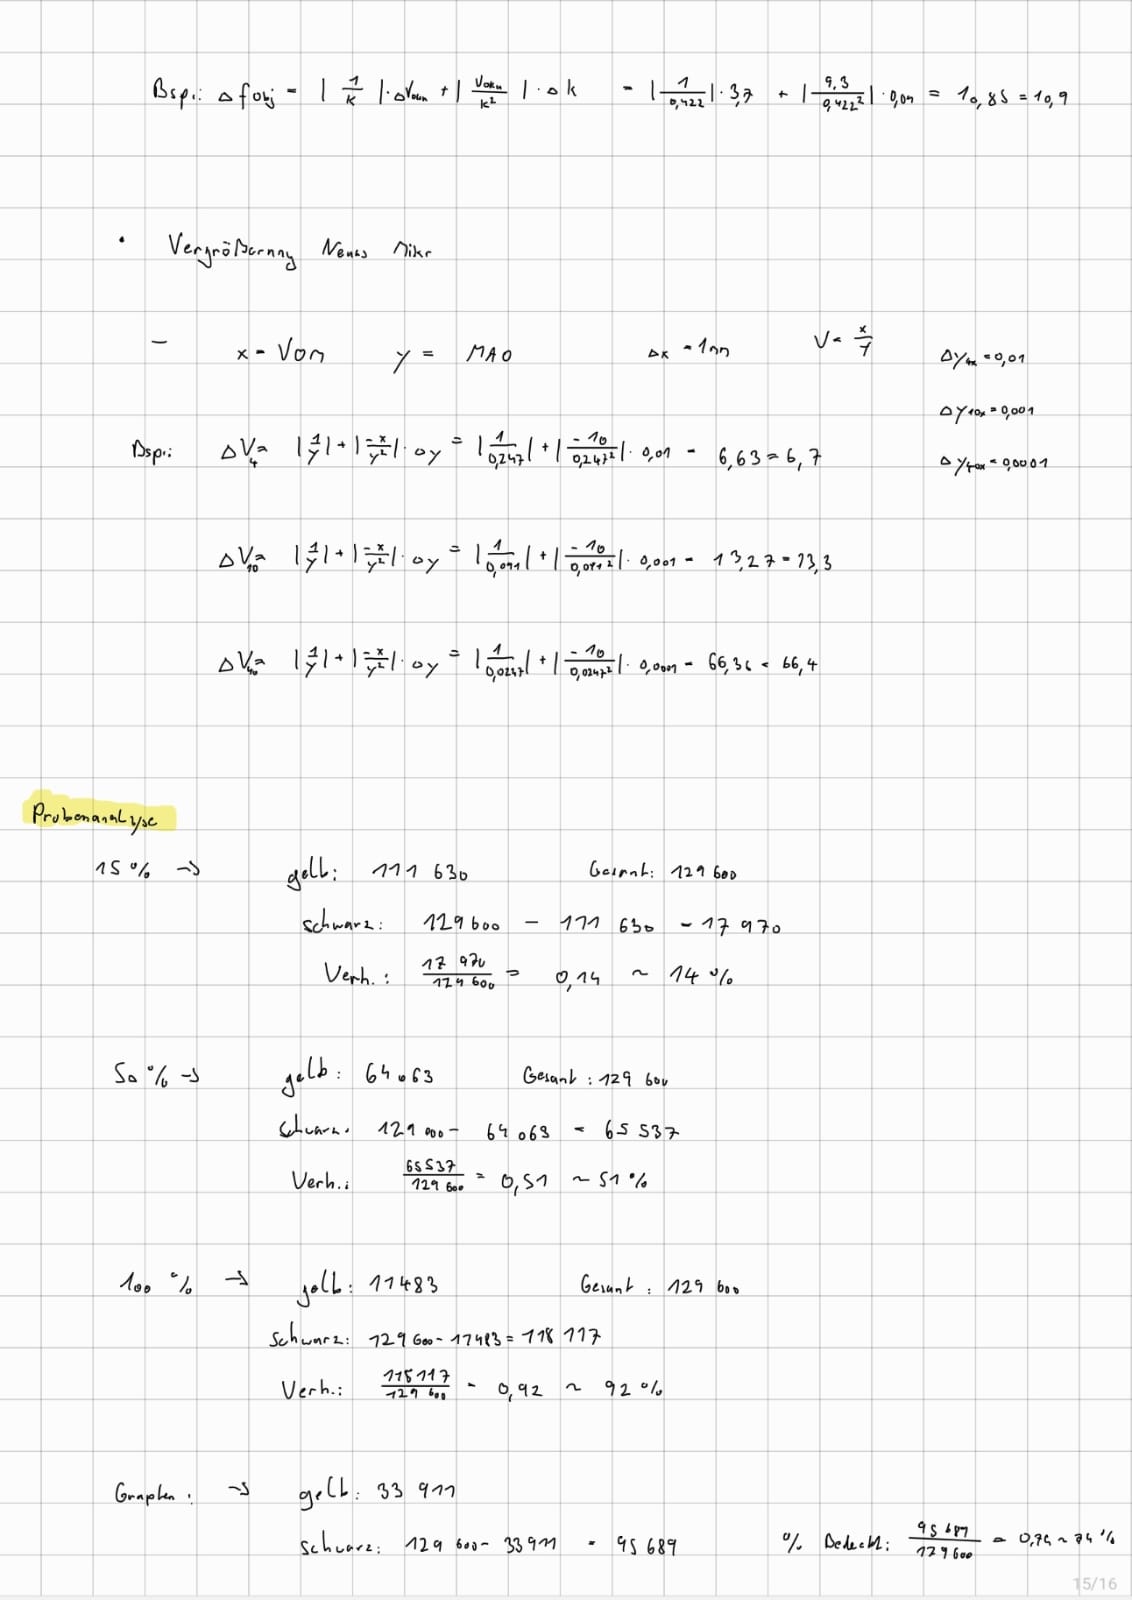 Bsp.: Δ fobj = | 1/K | · ΔVokn + | Vokn/K² | · Δk = | 1/0,422 | · 3,7 + | 9,3/0,422² | · 0,04 = 10,85 = 10,9
· Vergrößerung Neues Mikr
- x = VOM y = MAO Δx = 1mm V = x/y Δy4x = 0,01
Δy10x = 0,001
Bsp.: ΔV4 = |1/y| + |-x/y²| · Δy = |1/0,247| + |-10/0,247²| · 0,01 = 6,63 = 6,7 Δy40x = 0,0001
ΔV10 = |1/y| + |-x/y²| · Δy = |1/0,091| + |-10/0,091²| · 0,001 = 13,27 = 13,3
ΔV40 = |1/y| + |-x/y²| · Δy = |1/0,0247| + |-10/0,0247²| · 0,0001 = 66,36 = 66,4
Probenanalyse
15 % → gelb: 111 630 Gesamt: 129 600
schwarz: 129 600 - 111 630 = 17 970
Verh.: 17 970/129 600 = 0,14 ~ 14 %
50 % → gelb: 64 063 Gesamt: 129 600
schwarz: 129 000 - 64 063 = 65 537
Verh.: 65 537/129 600 = 0,51 ~ 51 %
100 % → gelb: 11483 Gesamt: 129 600
Schwarz: 129 600 - 11483 = 118 117
Verh.: 118117/129 600 = 0,92 ~ 92 %
Graphen: → gelb: 33 911
schwarz: 129 600 - 33 911 = 95 689 % Bedeckt: 95 689/129 600 = 0,74 ~ 74 %
15/16